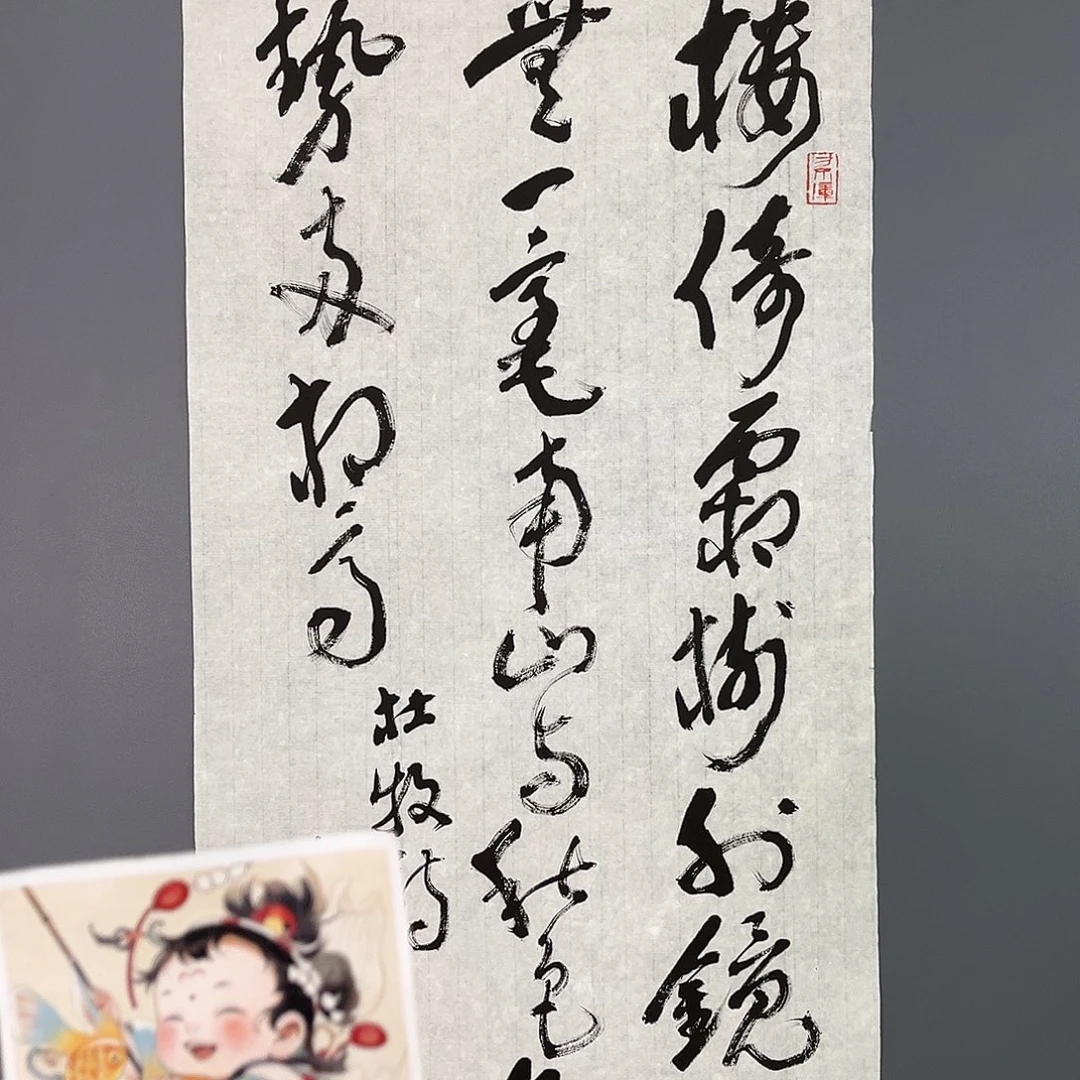 樓倚霜樹外鏡
無一毫南山与秋色
勢兩相高
杜牧詩